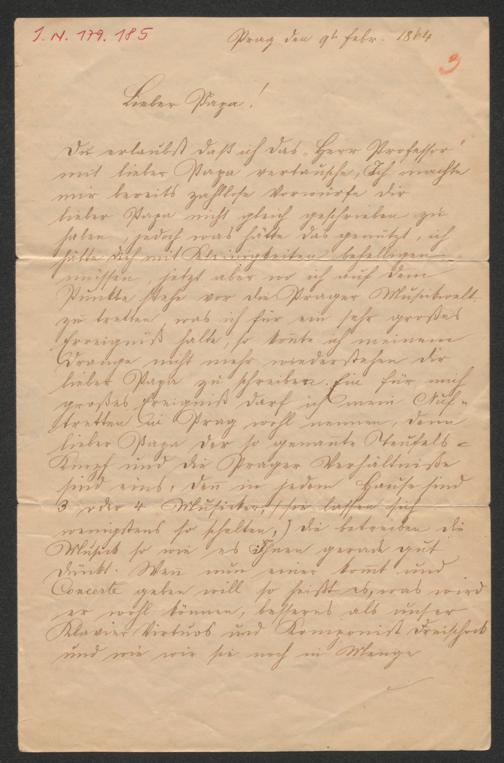 I. N. 179.185
Prag den 9t Febr. 1864
3
Lieber Papa!
Du erlaubst daß ich das „Herr Professor"
mit lieber Papa vertausche, Ich machte
mir bereits zahllose Vorwürfe dir
lieber Papa nicht gleich geschrieben zu
haben, jedoch was hätte das genutzt, ich
hätte dich mit Kleinigkeiten behelligen
müssen, jetzt aber wo ich auf dem
Punkte stehe vor die Prager Musikwelt
zu tretten, was ich für ein sehr großes
Ereigniß halte, so konnte ich meinem
Drange nicht mehr wiederstehen dir
lieber Papa zu schreiben. Ein für mich
großes Ereigniß darf ich mein Auf-
tretten in Prag wohl nennen, denn
lieber Papa der so genannte Teufels-
Kumpf und die Prager Verhältnisse
sind eins, den in jedem Hause sind
3 oder 4 Musicker, (sie lassen sich
wenigstens so schelten,) die betreiben die
Musick so wie es Ihnen gerade gut
dünkt. Wen nun einer komt und
Concerte geben will so heißt es, was wird
er wohl können, besseres als unser
Klavier Virtuos und Komponist Dreischock
und wie wir sie noch in Menge